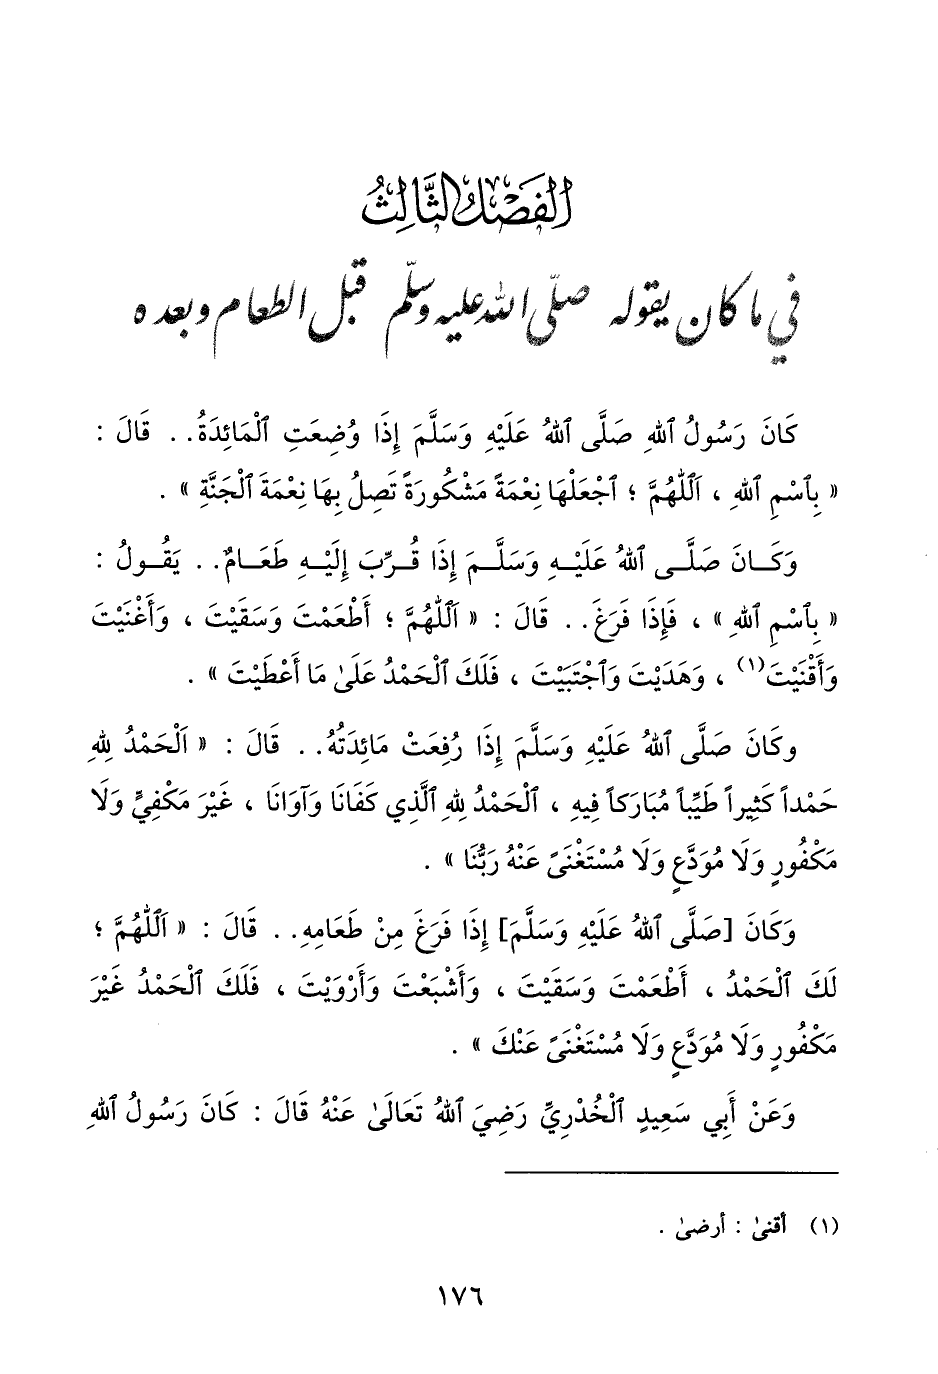 الفَصْلُ الثَّالِثُ
في ما كان يقوله صلّى الله عليه وسلّم قبل الطعام وبعده
كَانَ رَسُولُ ٱللهِ صَلَّى ٱللهُ عَلَيْهِ وَسَلَّمَ إِذَا وُضِعَتِ ٱلْمَائِدَةُ.. قَالَ :
« بِٱسْمِ ٱللهِ ، اَللَّهُمَّ ؛ ٱجْعَلْهَا نِعْمَةً مَشْكُورَةً تَصِلُ بِهَا نِعْمَةَ ٱلْجَنَّةِ » .
وَكَـانَ صَلَّـى ٱللهُ عَلَيْـهِ وَسَلَّـمَ إِذَا قُـرِّبَ إِلَيْـهِ طَعَـامٌ.. يَقُـولُ :
« بِٱسْمِ ٱللهِ » ، فَإِذَا فَرَغَ.. قَالَ : « اَللَّهُمَّ ؛ أَطْعَمْتَ وَسَقَيْتَ ، وَأَغْنَيْتَ
وَأَقْنَيْتَ(١) ، وَهَدَيْتَ وَٱجْتَبَيْتَ ، فَلَكَ ٱلْحَمْدُ عَلَىٰ مَا أَعْطَيْتَ » .
وكَانَ صَلَّى ٱللهُ عَلَيْهِ وَسَلَّمَ إِذَا رُفِعَتْ مَائِدَتُهُ.. قَالَ : « اَلْحَمْدُ لِلهِ
حَمْداً كَثِيراً طَيِّباً مُبَارَكاً فِيهِ ، ٱلْحَمْدُ لِلهِ ٱلَّذِي كَفَانَا وَآوَانَا ، غَيْرَ مَكْفِيٍّ وَلَا
مَكْفُورٍ وَلَا مُوَدَّعٍ وَلَا مُسْتَغْنَىً عَنْهُ رَبُّنَا » .
وَكَانَ [صَلَّى ٱللهُ عَلَيْهِ وَسَلَّمَ] إِذَا فَرَغَ مِنْ طَعَامِهِ.. قَالَ : « اَللَّهُمَّ ؛
لَكَ ٱلْحَمْدُ ، أَطْعَمْتَ وَسَقَيْتَ ، وَأَشْبَعْتَ وَأَرْوَيْتَ ، فَلَكَ ٱلْحَمْدُ غَيْرَ
مَكْفُورٍ وَلَا مُوَدَّعٍ وَلَا مُسْتَغْنَىً عَنْكَ » .
وَعَنْ أَبِي سَعِيدٍ ٱلْخُدْرِيِّ رَضِيَ ٱللهُ تَعَالَىٰ عَنْهُ قَالَ : كَانَ رَسُولُ ٱللهِ
(١) أقنىٰ : أرضىٰ .
١٧٦